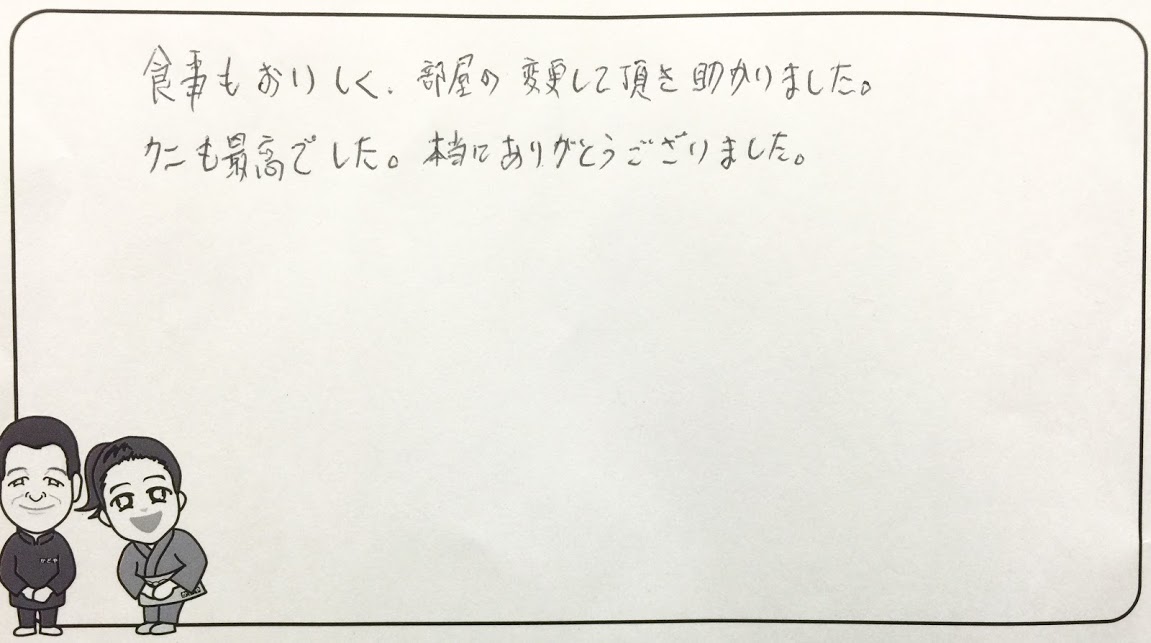 食事もおいしく、部屋の変更して頂き助かりました。
カニも最高でした。本当にありがとうございました。